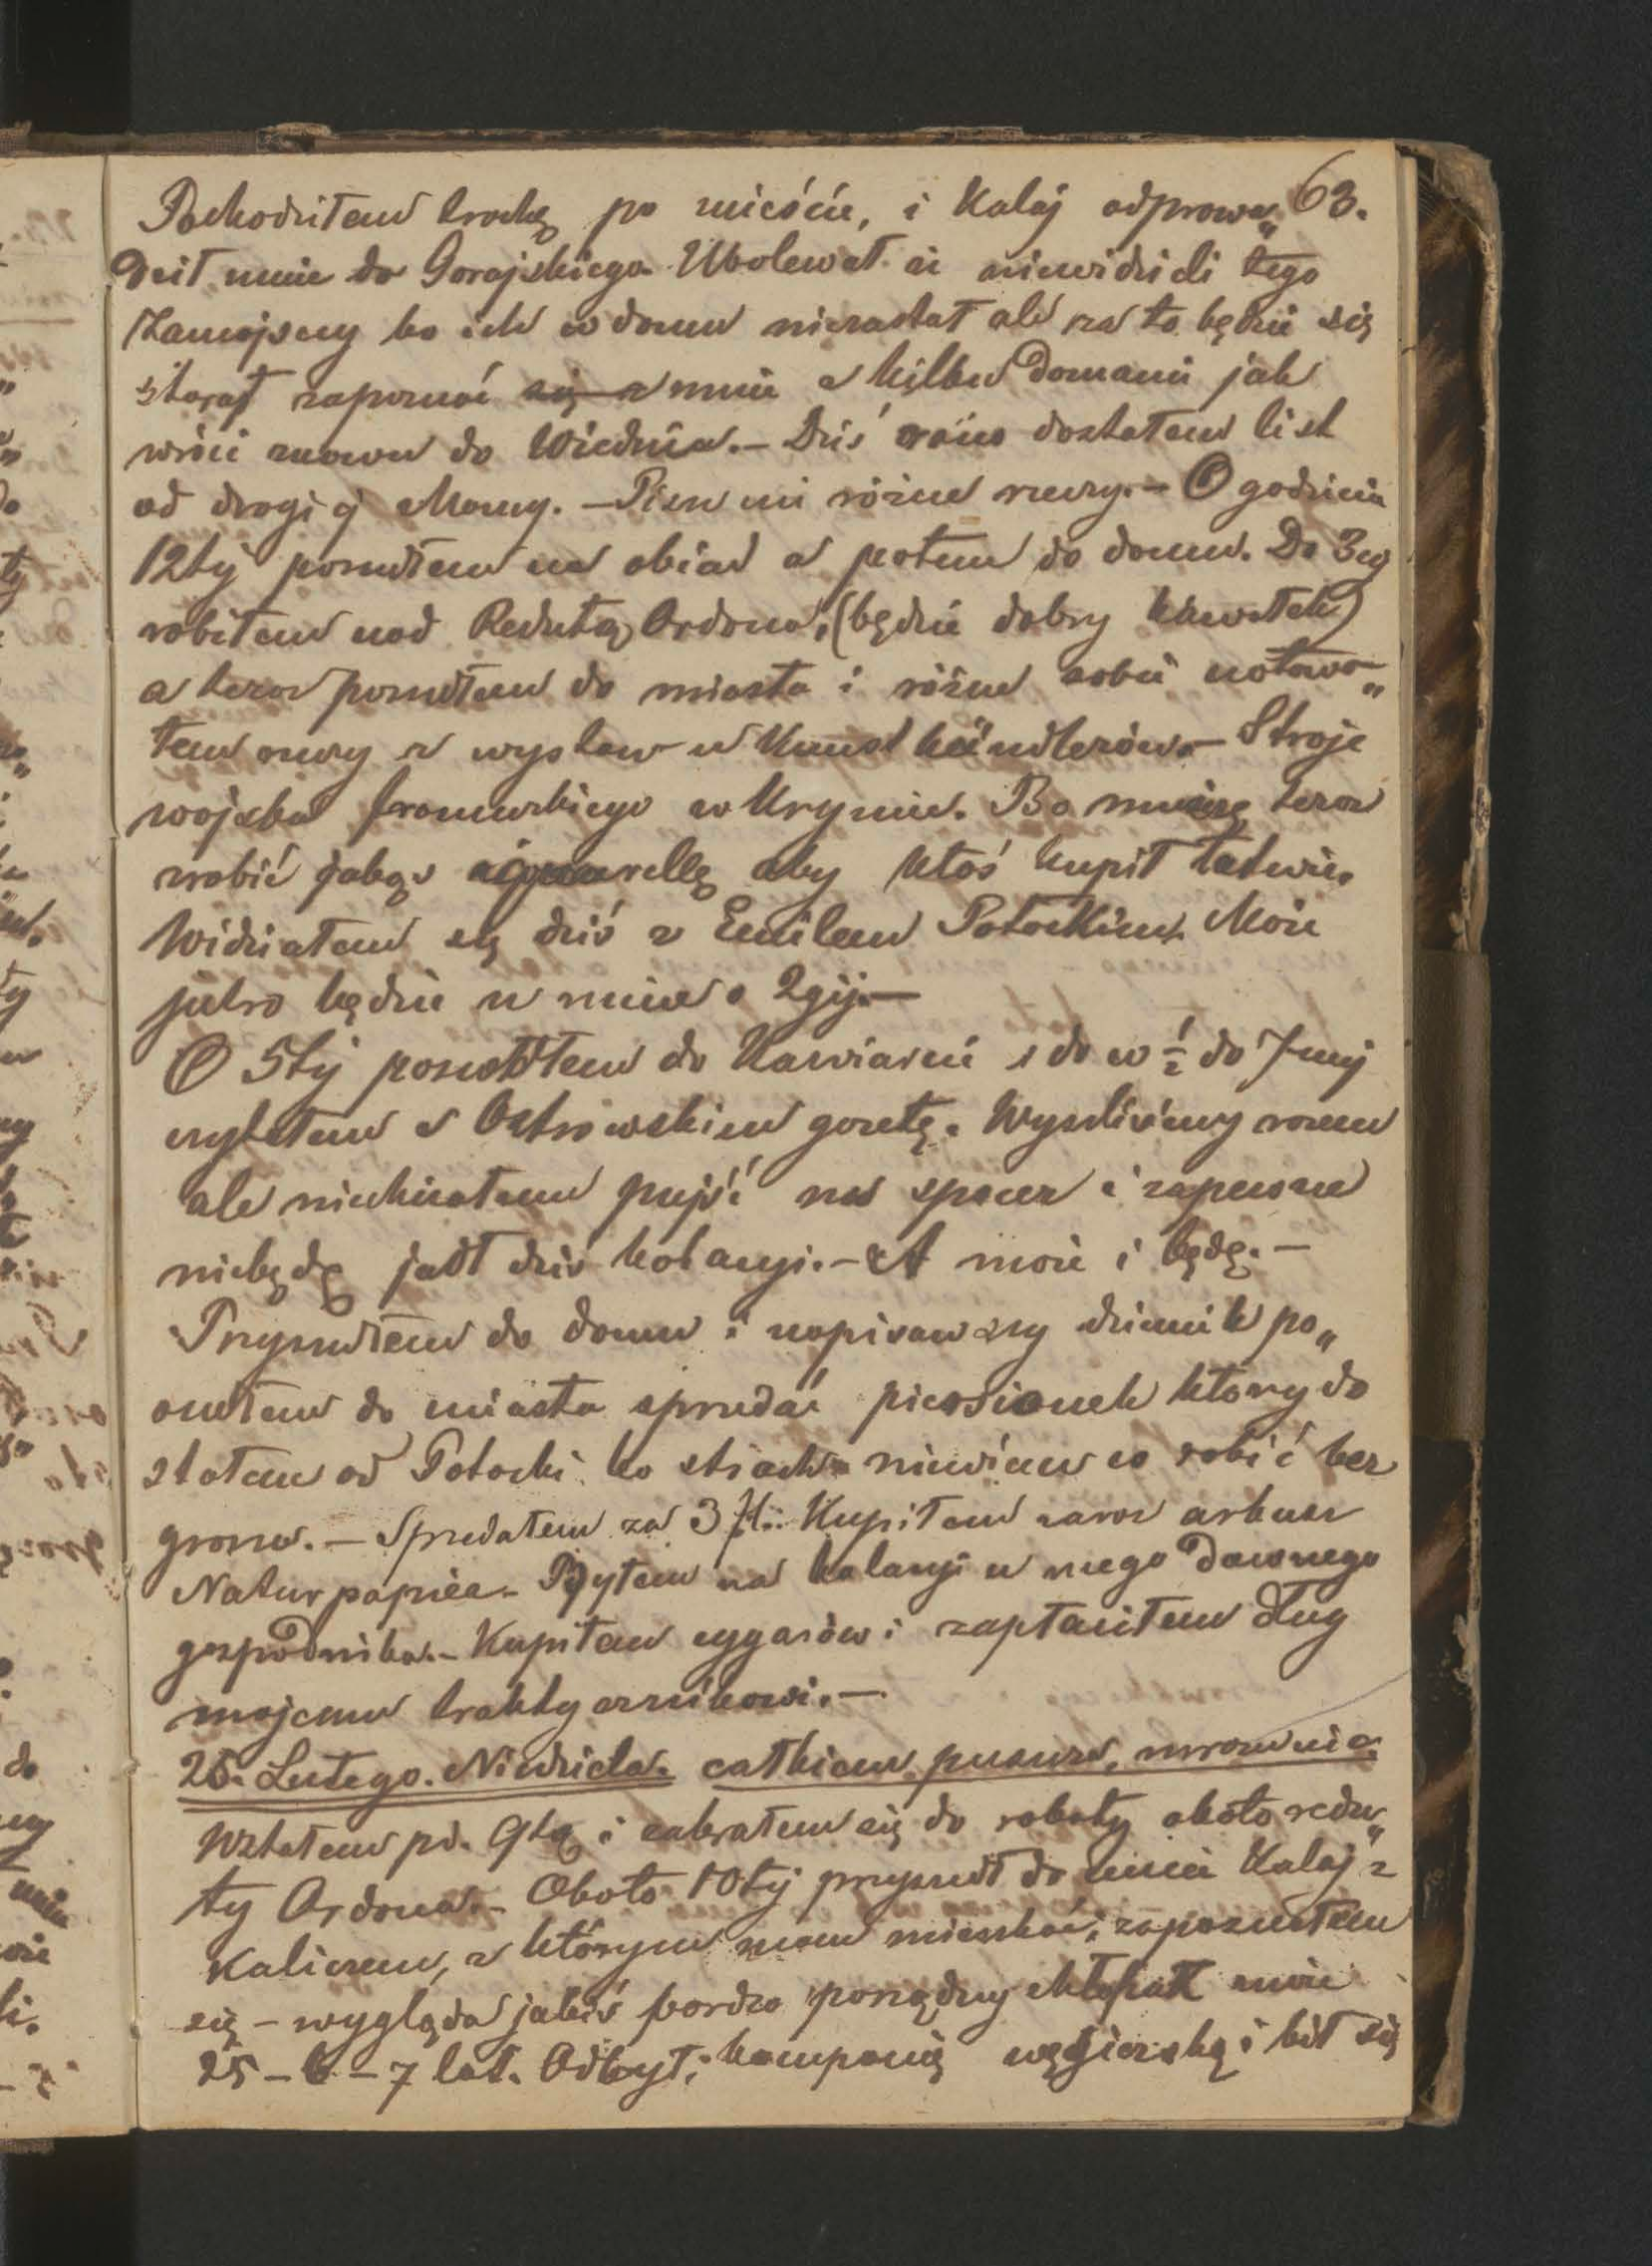 63.
Pochodziłem trochę po mieście, i Kalaj odprowa„
dził mnie do Gorajskiego. Ubolewał że niewidzieli tego
Zamojscy bo ich w domu niezastał ale za to będzie się
starał zapoznać się z mnie z kilku domami jak
wróci znowu do Wiednia. – Dziś rano dostałem list
od drogiej Mamy. – Pisze mi różne rzeczy. – O godzinie
12tej poszedłem na obiad a potem do domu. Do 3ey
robiłem nad Redutą Ordona, (będzie dobry kawałek)
a teraz poszedłem do miasta i różne sobie notowa„
łem rzeczy z wystaw u Kunsthändlerów. – Stroje
wojska francuzkiego w Krymie. Bo muszę teraz
zrobić jaką aquarellę aby ktoś kupił łatwie.
Widziałem się dziś z Emilem Potockim. Może
jutro będzie u mnie o 2giej. –
O 5tej poszedłem do Kawiarni i do w ½ do 7mej
czytałem z Ostrowskim gazetę. Wyszliśmy razem
ale niechciałem pujść na spacer i zapewne
niebędę jadł dziś kolacyi. – A może i będę. –
Przyszedłem do domu i napisawszy dziennik po„
szedłem do miasta sprzedać pierścionek który do
stałem od Potocki bo strach niewiem co robić bez
grosza. – Sprzedałem za 3 fl. Kupiłem zaraz arkusz
Natur papier. – Byłem na kolacyi u mego dawnego
gospodnika. – Kupiłem cygarów i zapłaciłem dług
mojemu traktyernikowi. –
25. Lutego. Niedziela. całkiem pusurw, mroznie.
Wstałem po. 9tą i zabrałem się do roboty około redu„
ty Ordona. – Około 10tej przyszedł do mnie Kalaj z
Kaliczem, z którym mam mieszkać, zapoznałem
się – wygląda jakiś bardzo porządny chłopak może
25 – 6 – 7 lat. Odbył kampanię węgierską i bił się